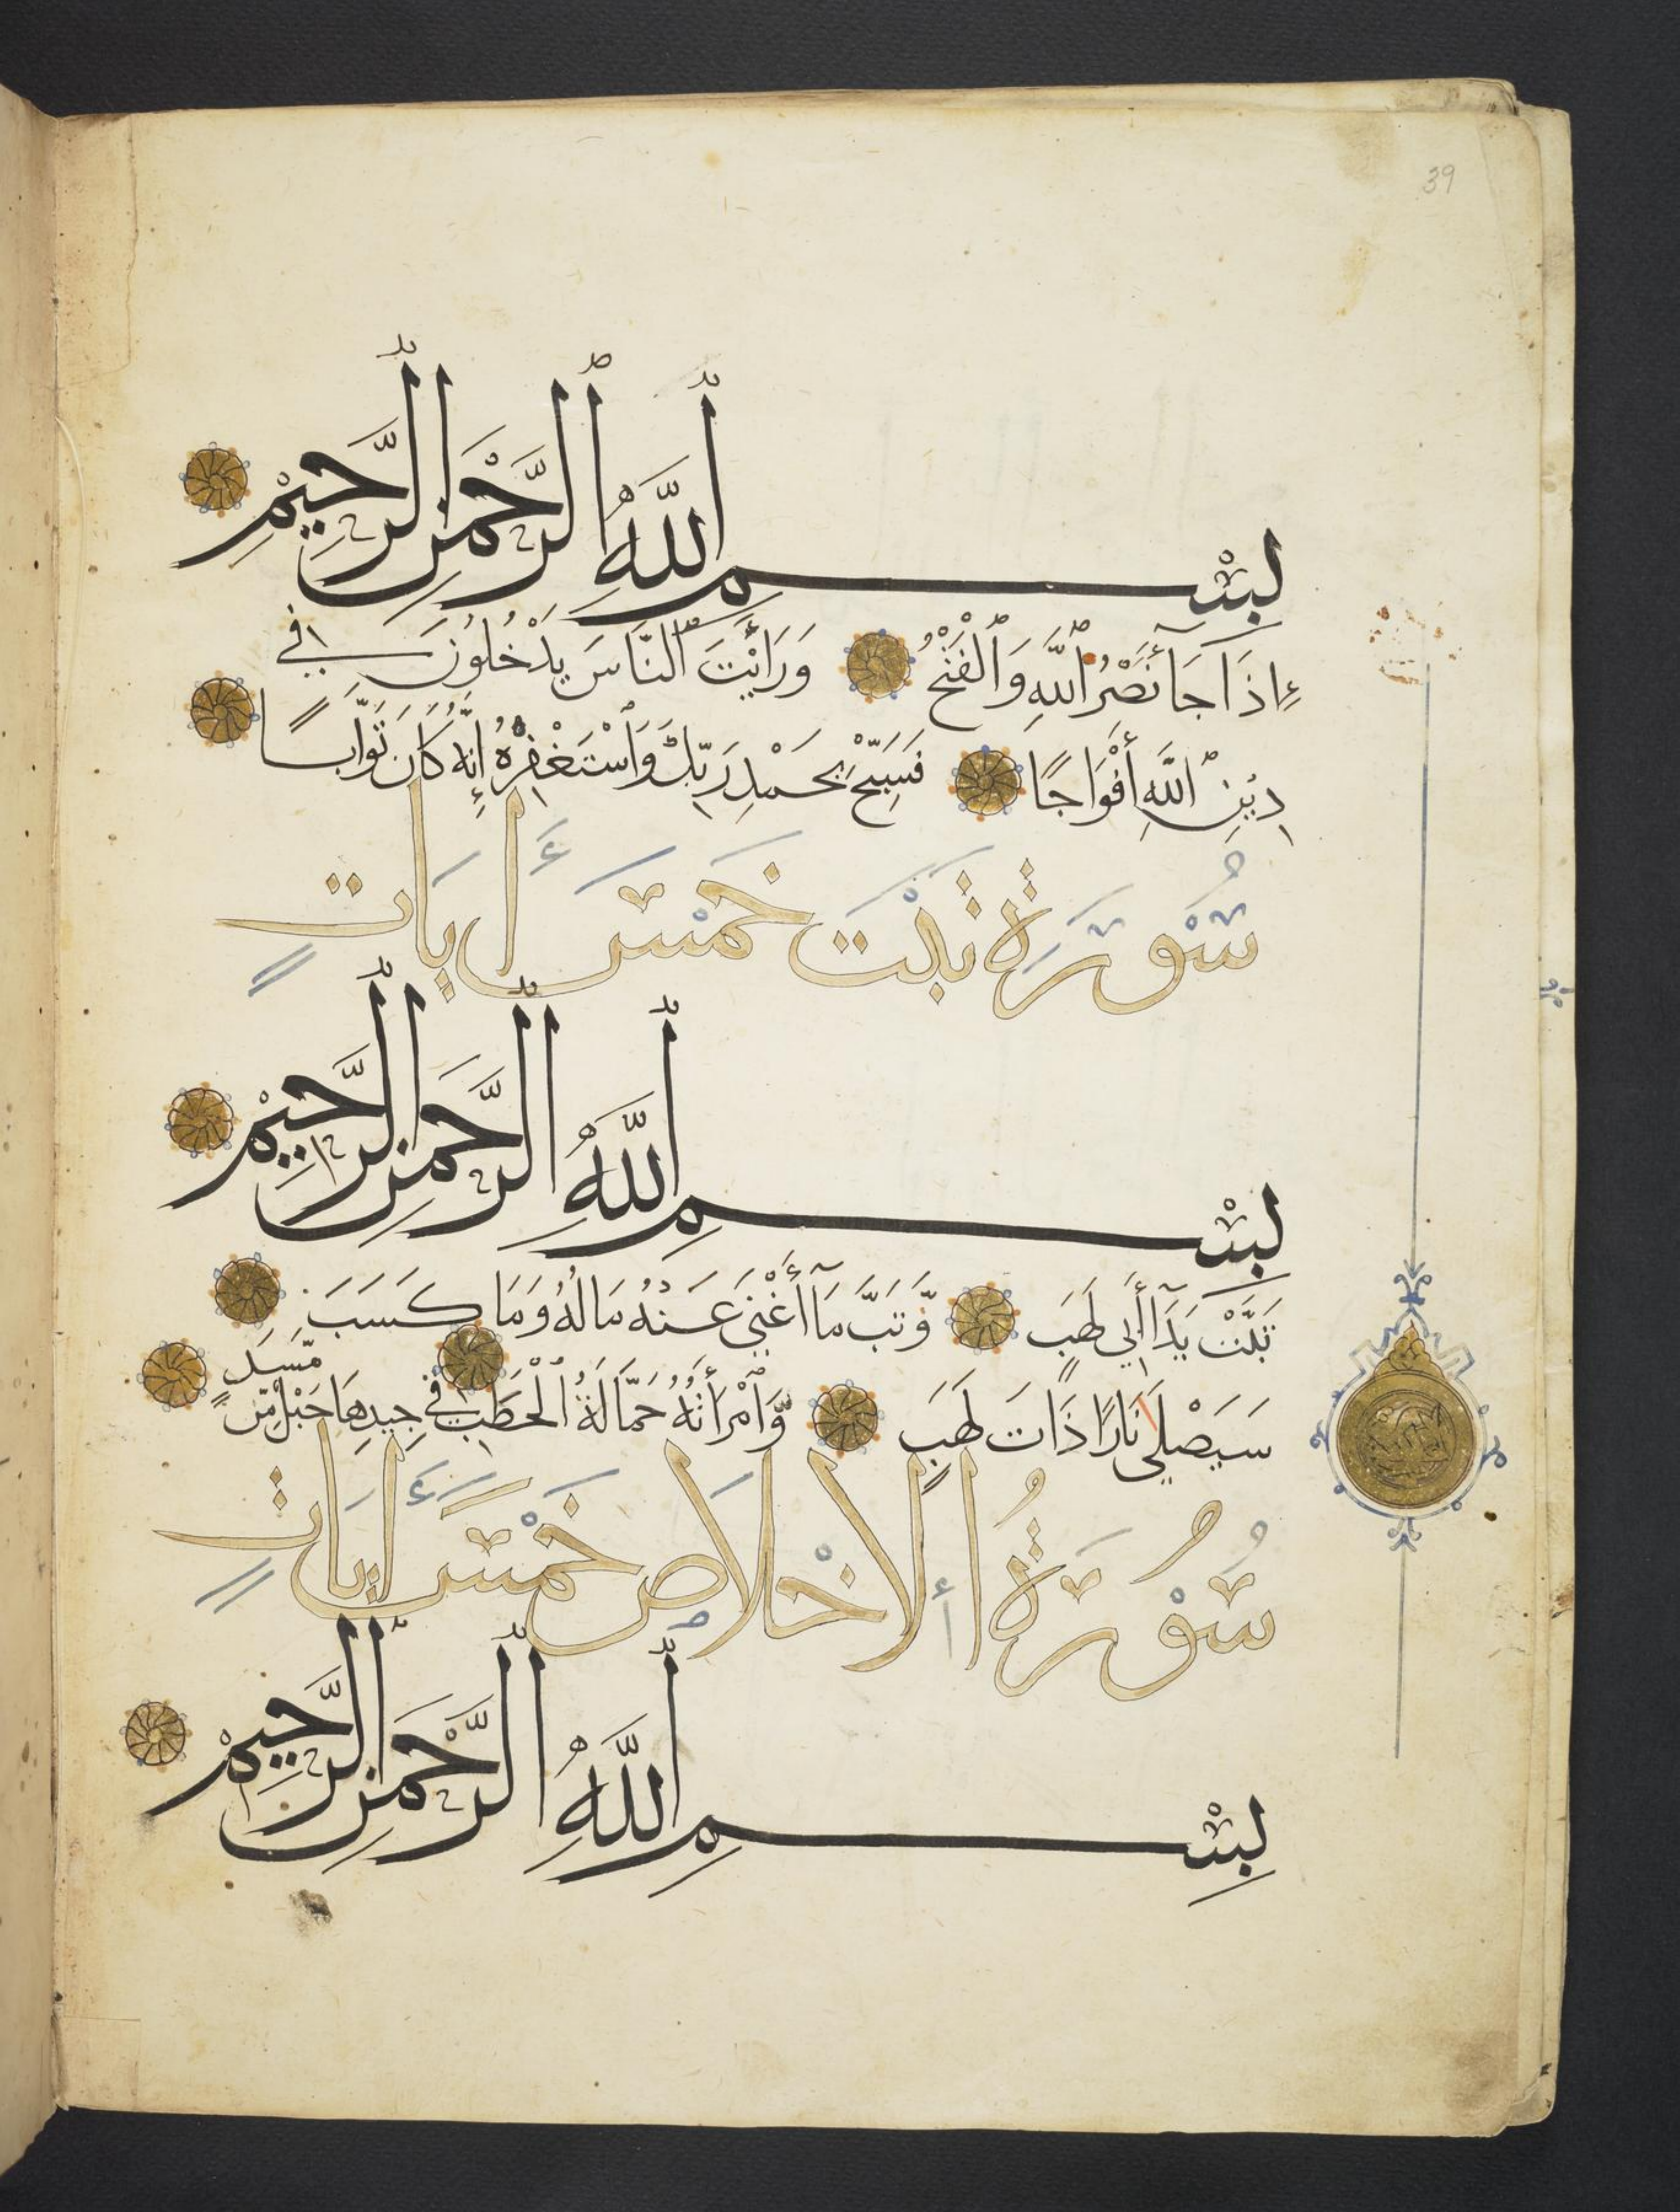 39
بِسْمِ ٱللَّهِ ٱلرَّحْمَنِ ٱلرَّحِيمِ
إِذَا جَآ نَصْرُ ٱللَّهِ وَٱلْفَتْحُ وَرَأَيْتَ ٱلنَّاسَ يَدْخُلُونَ فِي
دِينِ ٱللَّهِ أَفْوَاجًا فَسَبِّحْ بِحَمْدِ رَبِّكَ وَٱسْتَغْفِرْهُ إِنَّهُ كَانَ تَوَّابًا
سُورَةُ تَبَّتْ خَمْسُ أَيَاتٍ
بِسْمِ ٱللَّهِ ٱلرَّحْمَنِ ٱلرَّحِيمِ
تَبَّتْ يَدَآ أَبِي لَهَبٍ وَّتَبَّ مَآ أَغْنَى عَنْهُ مَالُهُ وَمَا كَسَبَ
سَيَصْلَى نَارًا ذَاتَ لَهَبٍ وَّٱمْرَأَتُهُ حَمَّالَةُ ٱلْحَطَبِ فِي جِيدِهَا حَبْلٌ مِّن مَّسَدٍ
سُورَةُ الإخلاص خَمْسُ أَيَاتٍ
بِسْمِ ٱللَّهِ ٱلرَّحْمَنِ ٱلرَّحِيمِ